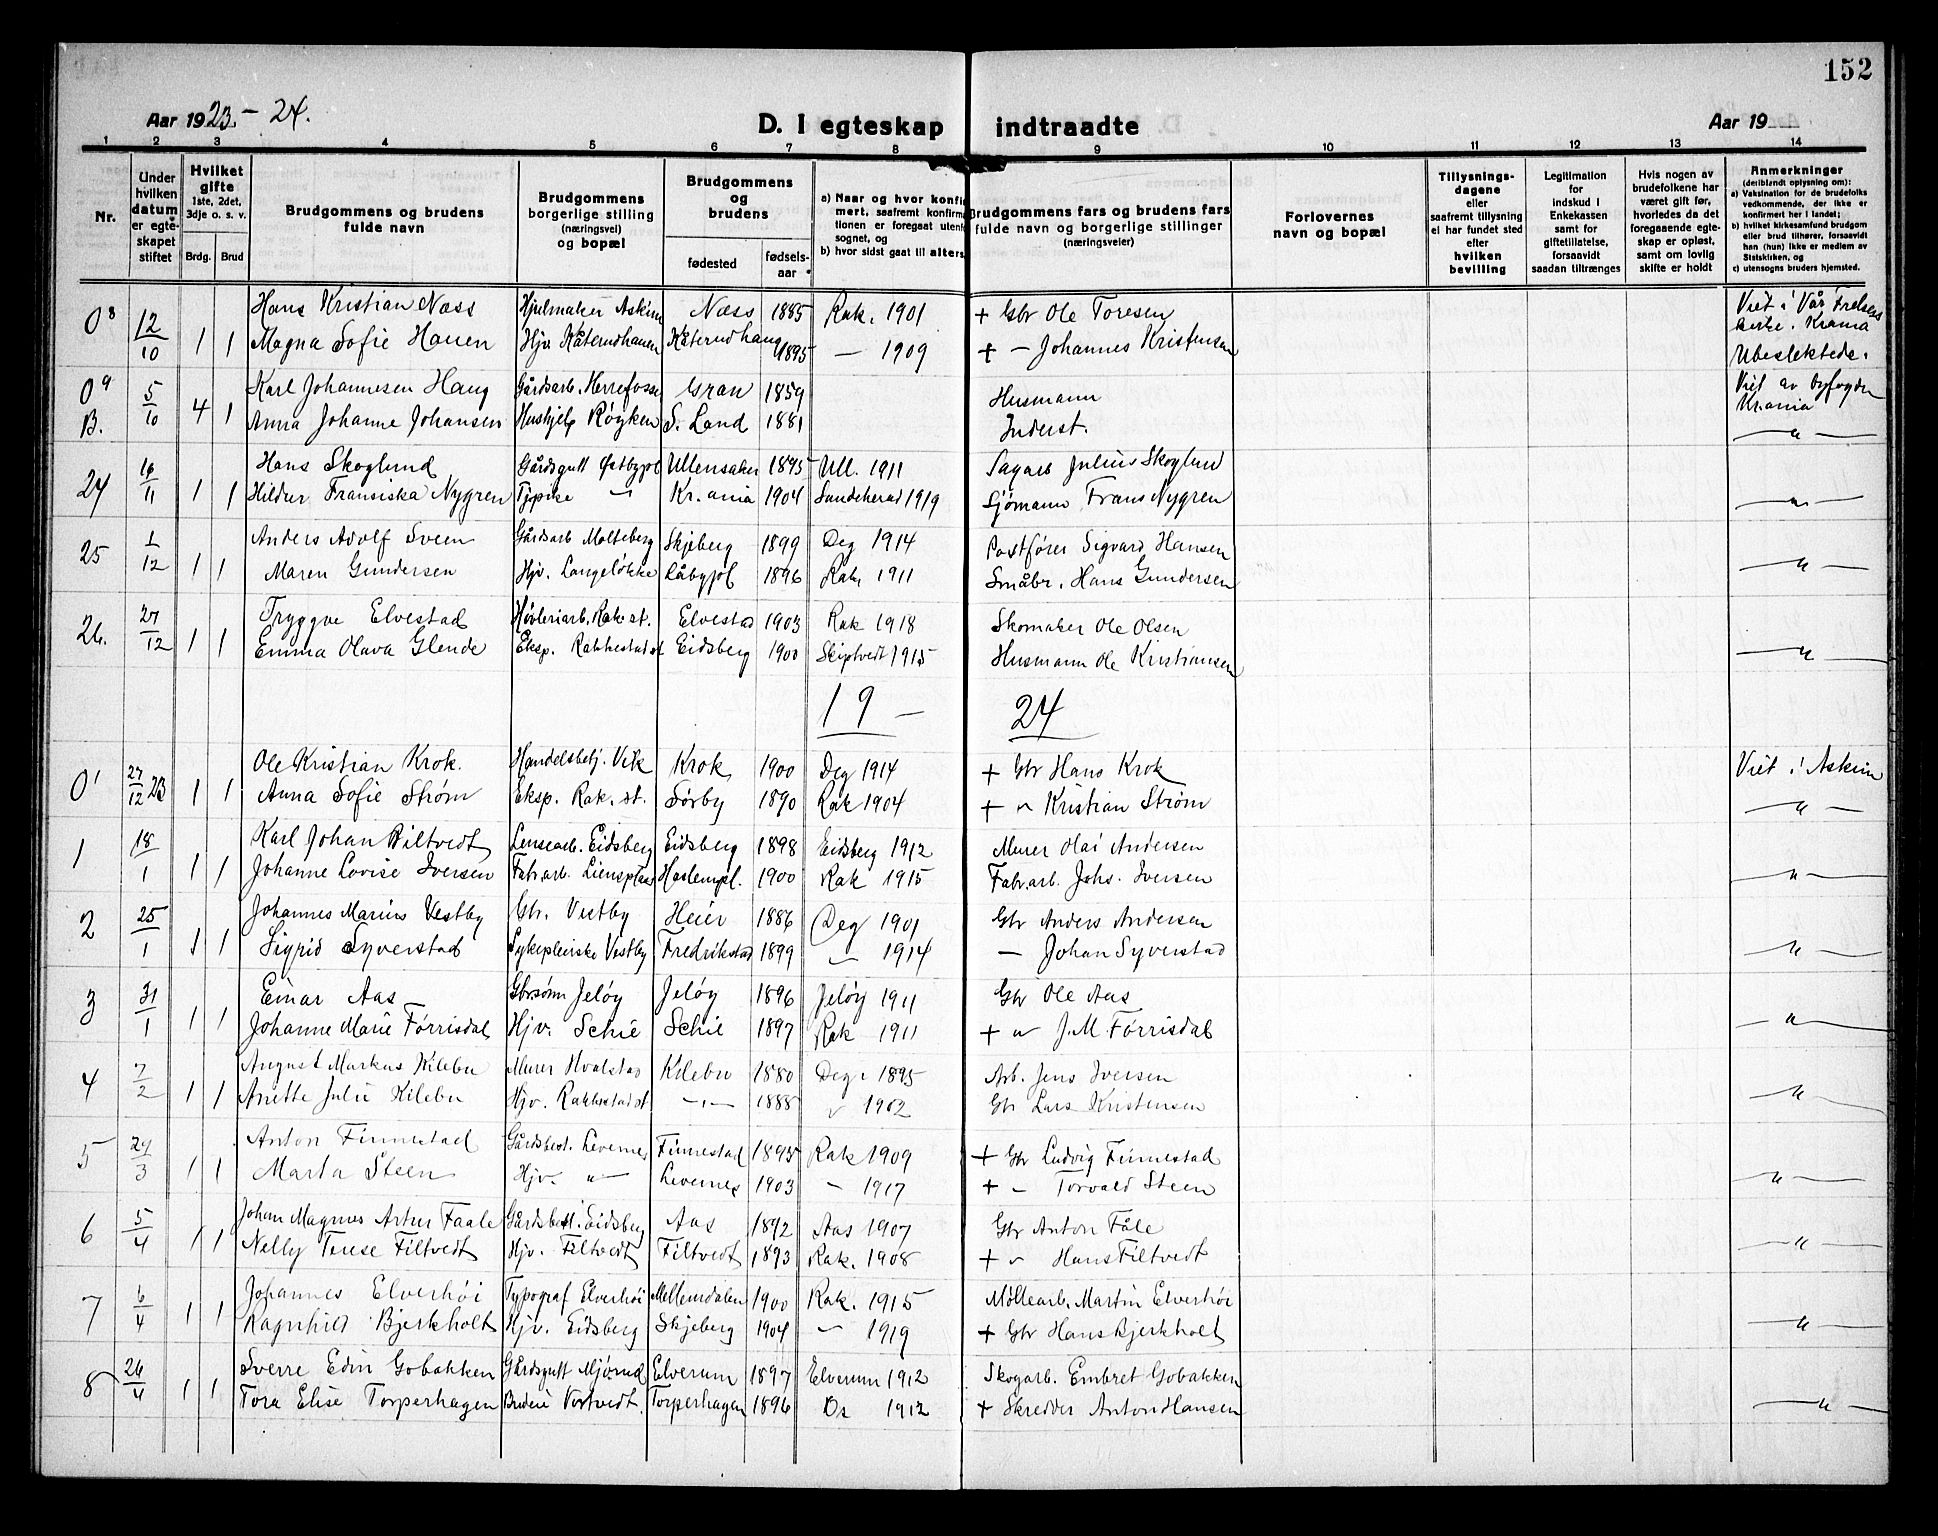 152
Aar 1923 – 24.
D. I egteskap indtraadte
Aar 19
1 2 3 4 5 6 7 8 9 10 11 12 13 14
Nr.
Under hvilken datum er egteskapet stiftet
Hvilket gifte 1ste, 2det, 3dje o. s. v.
Brdg. Brud
Brudgommens og brudens fulde navn
Brudgommens borgerlige stilling (næringsvei) og bopæl
Brudgommens og brudens
fødested
fødselsaar
a) Naar og hvor konfirmert, saafremt konfirmationen er foregaat utenfor sognet, og
b) hvor sidst gaat til alters.
Brudgommens fars og brudens fars fulde navn og borgerlige stillinger (næringsveier)
Forlovernes navn og bopæl
Tillysningsdagene eller saafremt tillysning ei har fundet sted efter hvilken bevilling
Legitimation for indskud i Enkekassen samt for giftetillatelse, forsaavidt saadan tiltrænges
Hvis nogen av brudefolkene har været gift før, hvorledes da det foregaaende egteskap er opløst, samt om lovlig skifte er holdt
Anmerkninger (deriblandt oplysning om):
a) Vaksination for de brudefolks vedkommende, der ikke er konfirmert her i landet;
b) hvilket kirkesamfund brudgom eller brud tilhører, forsaavidt han (hun) ikke er medlem av Statskirken, og
c) utensogns bruders hjemsted.
0⁸ 12/10 1 1 Hans Kristian Næss Hjulmaker Askim Næss 1885 Rak. 1901 + Gbr Ole Toresen Viet i Vår Frelsers kirke. Krania
Magna Sofie Hauen Hjv. Kåterudhauen Kåterudhaug 1895 — 1909 + — Johannes Kristensen Ubeslektede.
0⁹ B. 5/10 4 1 Karl Johannesen Haug Gårdsarb. Herrefosse Gran 1859 Husmann Viet av byfogden Kr.ania
Anna Johanne Johansen Hushjelp Røyken S. Land 1881 Inderst. — " —
24 16/11 1 1 Hans Skoglund Gårdsgutt Østbypl Ullensaker 1895 Ull. 1911 Sagarb Julius Skoglund
Hildur Fransiska Nygren Tjpike — " Kr.ania 1904 Sandeherad 1919 Sjømann Frans Nygren — " —
25 1/12 1 1 Anders Adolf Sveen Gårdsarb Molteberg Skjeberg 1899 Deg 1914 Postfører Sigvard Hansen
Maren Gundersen Hjv. Langeløkke Låbypl 1896 Rak. 1911 Småbr. Hans Gundersen — " —
26. 27/12 1 1 Tryggve Elvestad Høvleriarb. Rak.st. Elvestad 1903 Rak 1918 Skomaker Ole Olsen
Emma Olava Glende Eksp. Rakkestad st Eidsberg 1900 Skiptvedt 1915 Husmann Ole Kristiansen — " —
19 — 24
0¹ 27/12 23 1 1 Ole Kristian Krok. Handelsbetj. Vik Krok 1900 Deg 1914 + Gbr Hans Krok Viet i Askim
Anna Sofie Strøm Eksp. Rak. st. Sørby 1890 Rak 1904 + " Kristian Strøm — " —
1 18/1 1 1 Karl Johan Biltvedt Lensearb. Eidsberg Eidsberg 1898 Eidsberg 1912 Murer Olai Andersen
Johanne Lovise Iversen Fabr.arb. Liensplass Haslempl. 1900 Rak 1915 Fabr.arb. Johs. Iversen — " —
2 25/1 1 1 Johannes Marius Vestby Gbr. Vestby Heier 1886 Deg 1901 Gbr Anders Andersen
Sigrid Syverstad Sykepleierske Vestby Fredrikstad 1899 — 1914 — Johan Syverstad — " —
3 31/1 1 1 Einar Aas Gbrsønn Jeløy Jeløy 1896 Jeløy 1911 Gbr Ole Aas
Johanne Marie Førrisdal Hjv. Schie Schie 1897 Rak 1911 + " J. M. Førrisdal — " —
4 7/2 1 1 August Markus Kilebu Murer Hvalstad Kilebu 1880 Deg. 1895 Arb. Jens Iversen
Anette Julie Kilebu Hjv. Rakkestad st — " — 1888 " 1902 Gbr Lars Kristensen — " —
5 24/3 1 1 Anton Finnestad Gårdsbest. Levernes Finnestad 1895 Rak 1909 + Gbr Ludvig Finnestad
Marta Steen Hjv. — " — Levernes 1903 — 1917 + — Torvald Steen — " —
6 5/4 1 1 Johan Magnus Artur Faale Gårdsbest. Eidsberg Aas 1892 Aas 1907 Gbr Anton Fåle
Nelly Terese Filtvedt Hjv. Filtvedt Filtvedt 1893 Rak. 1908 + " Hans Filtvedt — " —
7 6/4 1 1 Johannes Elverhöi Typograf Elverhöi Mellemdalen 1900 Rak. 1915 Møllearb. Martin Elverhöi
Ragnhild Bjerkholt Hjv. Eidsberg Skjeberg 1904 — 1919 + Gbr Hans Bjerkholt — " —
8 26/4 1 1 Sverre Edin Gobakken Gårdsgutt Mjørud Elverum 1897 Elverum 1912 Skogarb. Embret Gobakken
Tora Elise Torperhagen Budeie Vortvedt. Torperhagen 1896 Os 1912 + Skredder Anton Hansen — " —